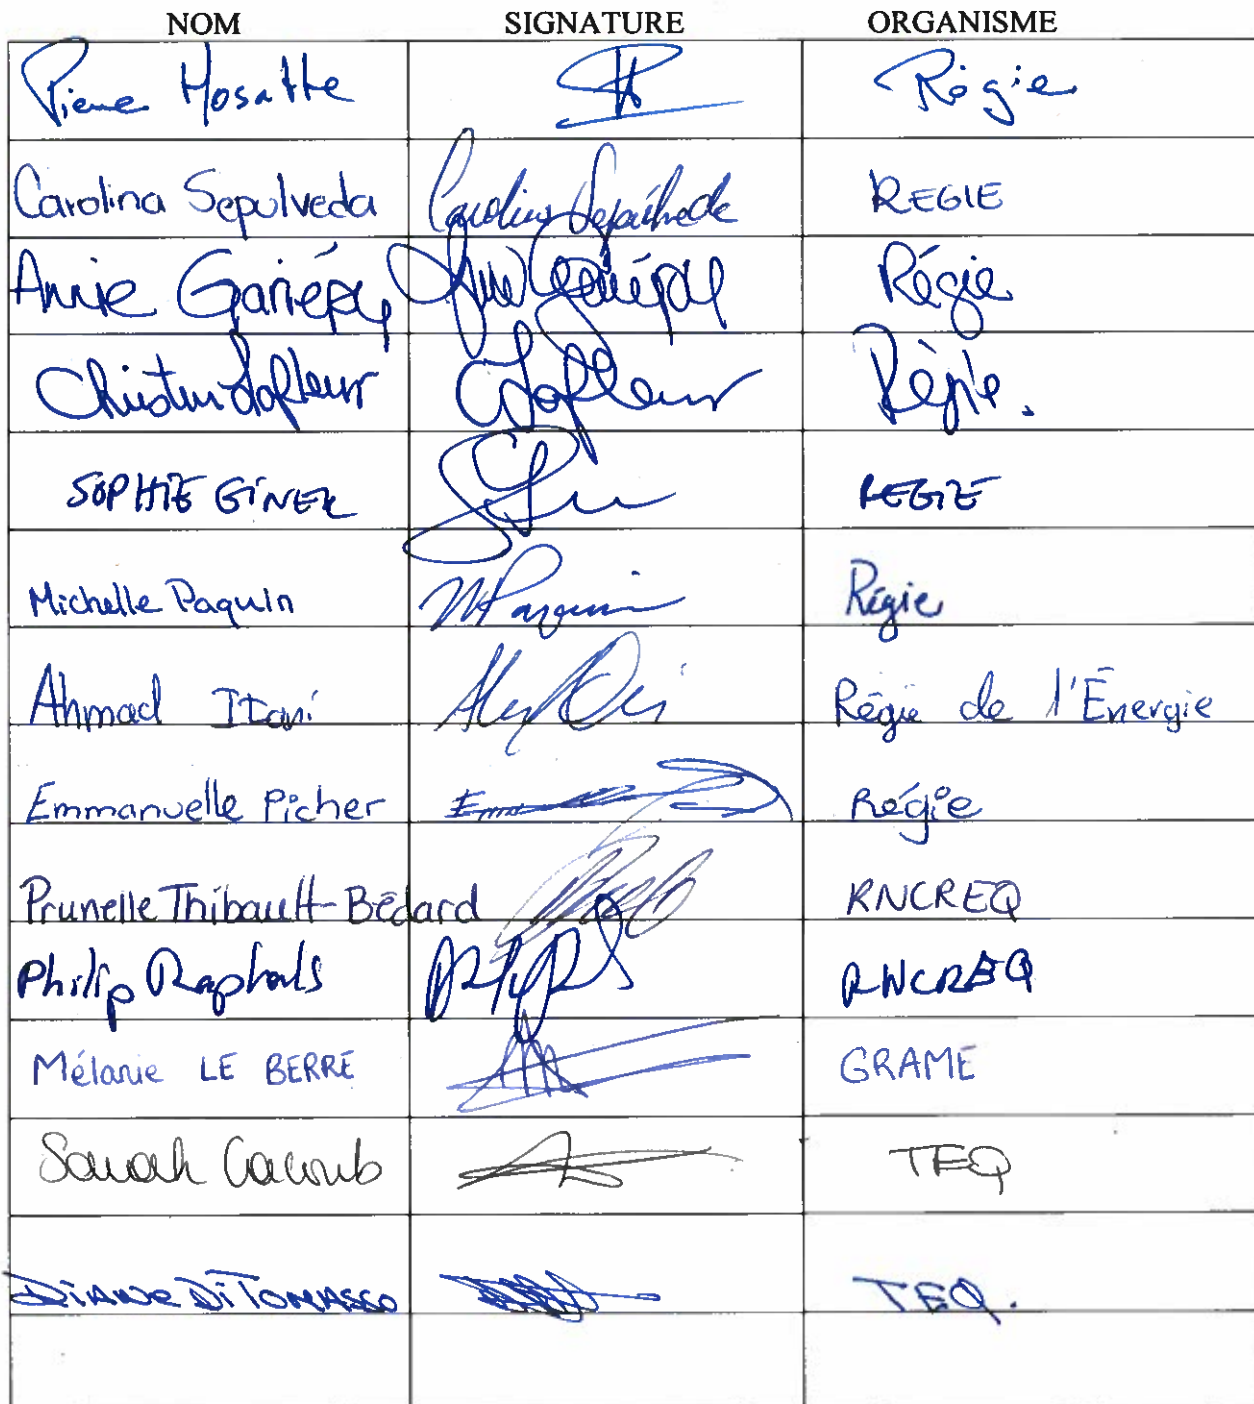 NOM SIGNATURE ORGANISME
Pierre Régie
Carolina Sepulveda Carolina Sepúlveda REGIE
Annie Gariépy Annie Gariépy Régie
Lafleur CLafleur Régie.
SOPHIE GINER REGIE
Michelle Paquin MPaquin Régie
Ahmad Itani Régie de l'Énergie
Emmanuelle Picher Régie
Prunelle Thibault-Bédard RNCREQ
Philip Raphals RNCREQ
Mélanie LE BERRE GRAME
Sarah TEQ
DIANE DI TOMASSO TEQ.